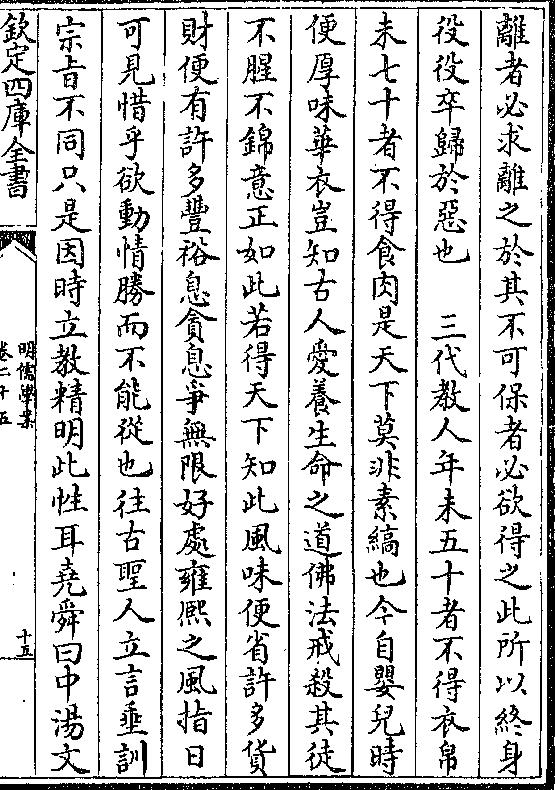 離者必求離之於其不可保者必欲得之此所以終身
役役卒歸於惡也　三代教人年未五十者不得衣帛
未七十者不得食肉是天下莫非素縞也今自嬰兒時
便厚味華衣豈知古人愛養生命之道佛法戒殺其徒
不腥不錦意正如此若得天下知此風味便省許多貨
財便有許多豐裕息貪息爭無限好處雍熙之風指日
可見惜乎欲動情勝而不能從也往古聖人立言垂訓
宗旨不同只是因時立教精明此性耳堯舜曰中湯文
欽定四庫全書
明儒學案
卷二十五
十五